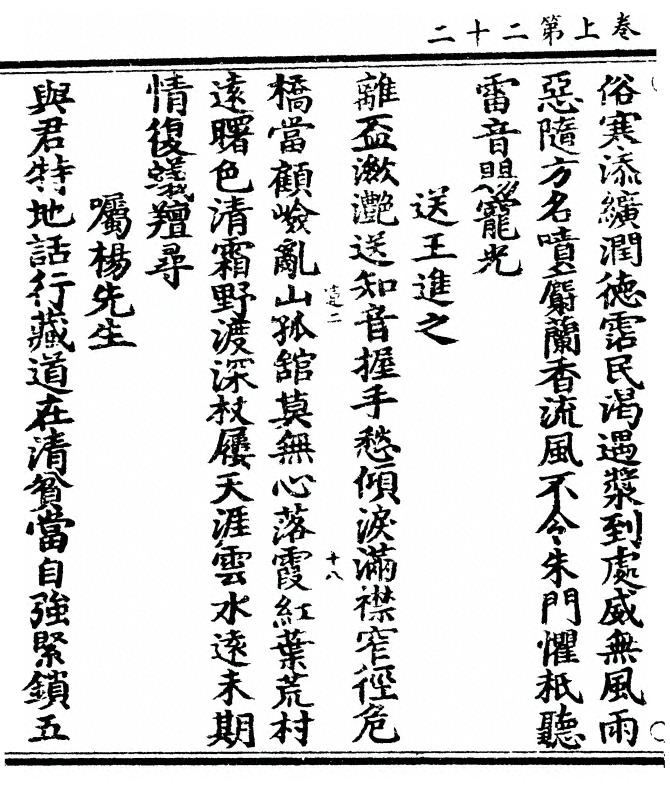 卷上第二十二
俗寒添纊潤德霑民渴遇漿到處威無風雨
惡隨方名噴麝蘭香流風不令朱門懼秖聽
雷音照寵光
送王進之
離盃瀲灩送知音握手愁傾淚滿襟窄徑危
十八
橋當顧嶮亂山孤舘莫無心落霞紅葉荒村
遠曙色清霜野渡深杖屨天涯雲水遠未期
情復蟻羶尋
囑楊先生
與君特地話行藏道在清貧當自強緊鎖五